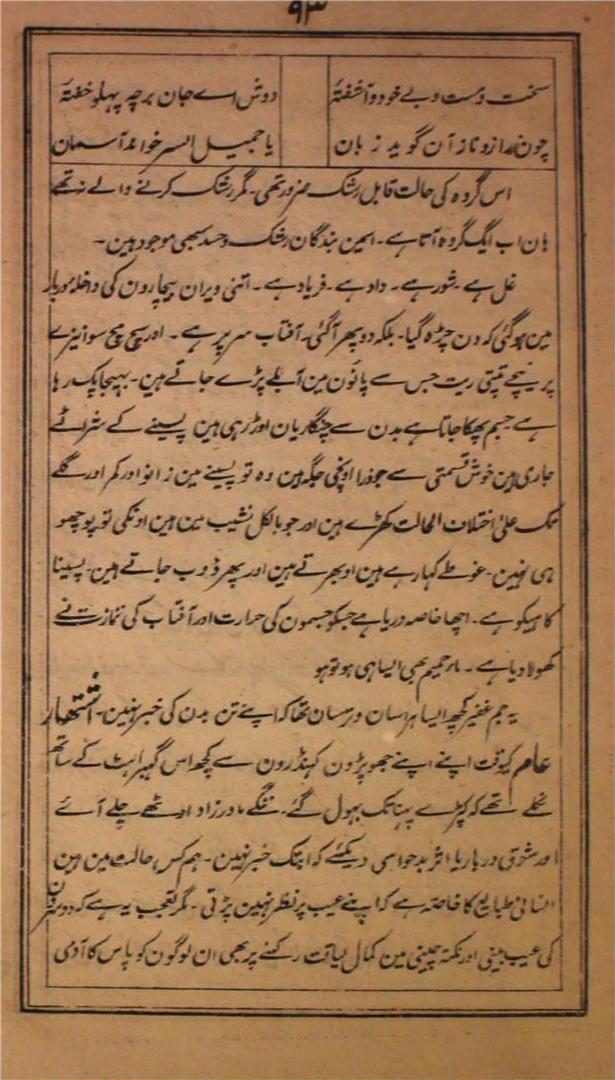 ۹۳
سخت و مست و بے خود و آشفتۂ
دوش اے جان برچہ پہلو خفتۂ
چون راز و ناز آن گوید زبان
یا جمیل الستر خواند آسمان
اس گروہ کی حالت قابل رشک ضرور تھی۔ مگر رشک کرنے والے نہ تھے
ہان اب ایک گروہ آتا ہے۔ اسمین بندگان رشک و حسد سبھی موجود ہین۔
غل ہے۔ شور ہے۔ داد ہے۔ فریاد ہے۔ اتنی ویران بیچارون کی داخلہ دربار
مین ہوگئی کہ دن چڑہ گیا۔ بلکہ دوپہر آگئی۔ آفتاب سر پر ہے۔ اور سچ مچ سوا نیزے
پر نیچے تپتی ریت جس سے پانون مین آبلے پڑے جاتے ہین۔ بہیجا پک رہا
ہے جسم پھکا جاتا ہے بدن سے چنگاریان اوڑ رہی ہین پسینے کے شراٹے
جاری ہین خوش قسمتی سے جو ذرا اونچی جگہ ہین وہ تو پسینے مین زانو اور کمر اور گلے
تک علیٰ اختلاف الحالت کھڑے ہین اور جو بالکل نشیب مین ہین اونکی تو پوچھو
ہی نہین۔ غوطے کہا رہے ہین اوبھرتے ہین اور پھر ڈوب جاتے ہین۔ پسینا
کاہیکو ہے۔ اچھا خاصہ دریا ہے جسکو جسمون کی حرارت اور آفتاب کی تمازت نے
کھولا دیا ہے۔ ماء حمیم بھی ایسا ہی ہو تو ہو
یہ جم غفیر کچھ ایسا ہراسان و ترسان تھا کہ اپنے تن بدن کی خبر نہین۔ اشتہار
عام کیوقت اپنے اپنے جھوپڑون کہنڈرون سے کچھ اس گھبراہٹ کے ساتھ
نکلے تھے کہ کپڑے پہننا تک بہول گئے۔ ننگے مادر زاد اوٹھے چلے آئے
اور شوق دربار یا اثر بدحواسی دیکھئے کہ ابتک خبر نہین۔ ہم کس حالت مین ہین
انسانی طبایع کا خاصہ ہے کہ اپنے عیب پر نظر نہین پڑتی۔ مگر تعجب یہ ہے کہ دوسرون
کی عیب بینی اور نکتہ چینی مین کمال لیاقت رکہنے پر بھی ان لوگون کو پاس کا آدمی